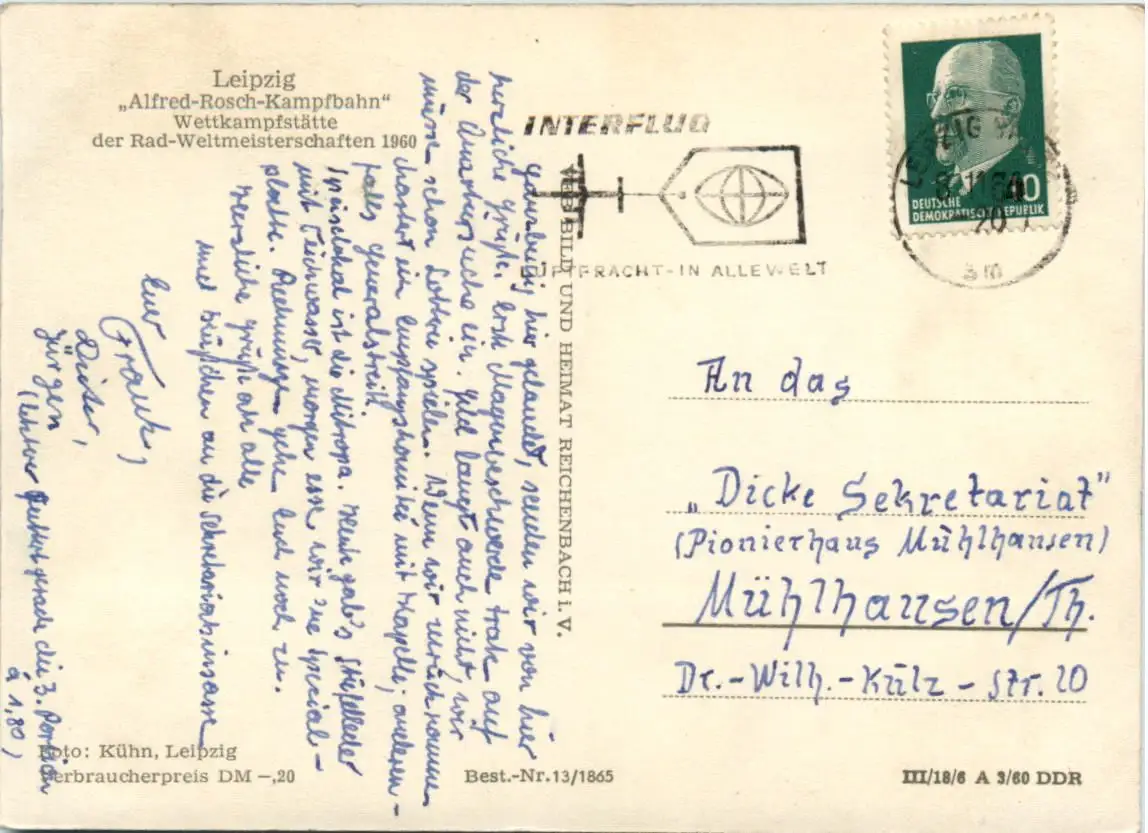 Leipzig
„Alfred-Rosch-Kampfbahn“
Wettkampfstätte
der Rad-Weltmeisterschaften 1960
Ganz hier gelandet, senden wir von hier
herzliche Grüße. Erste Magenbeschwerde trat auf
der Quartiersuche ein. Geld langt auch nicht, wir
müssen schon Lotterie spielen. Wenn wir zurückkommen
chartert ein Empfangskomitee mit Kapelle, anderen-
falls Generalstreik.
Speiselokal ist die Mitropa. Heute gab's Stiefelleder
mit Teichwasser, morgen essen wir 'ne Spezial-
platte. Rechnungen gehen Euch noch zu.
Herzliche Grüße an alle
und Küßchen an die Sekretariatsinsassen
Euer
Frank,
Dieter,
Jürgen
(letzter die 3. Portion
à 1,80)
Foto: Kühn, Leipzig
Verbraucherpreis DM –,20
Best.-Nr. 13/1865
VEB BILD UND HEIMAT REICHENBACH i. V.
INTERFLUG
LUFTFRACHT-IN ALLE WELT
LEIPZIG
DEUTSCHE
DEMOKRATISCHE REPUBLIK
An das
„Dicke Sekretariat“
(Pionierhaus Mühlhausen)
Mühlhausen/Th.
Dr.-Wilh.-Külz-Str. 20
III/18/6 A 3/60 DDR